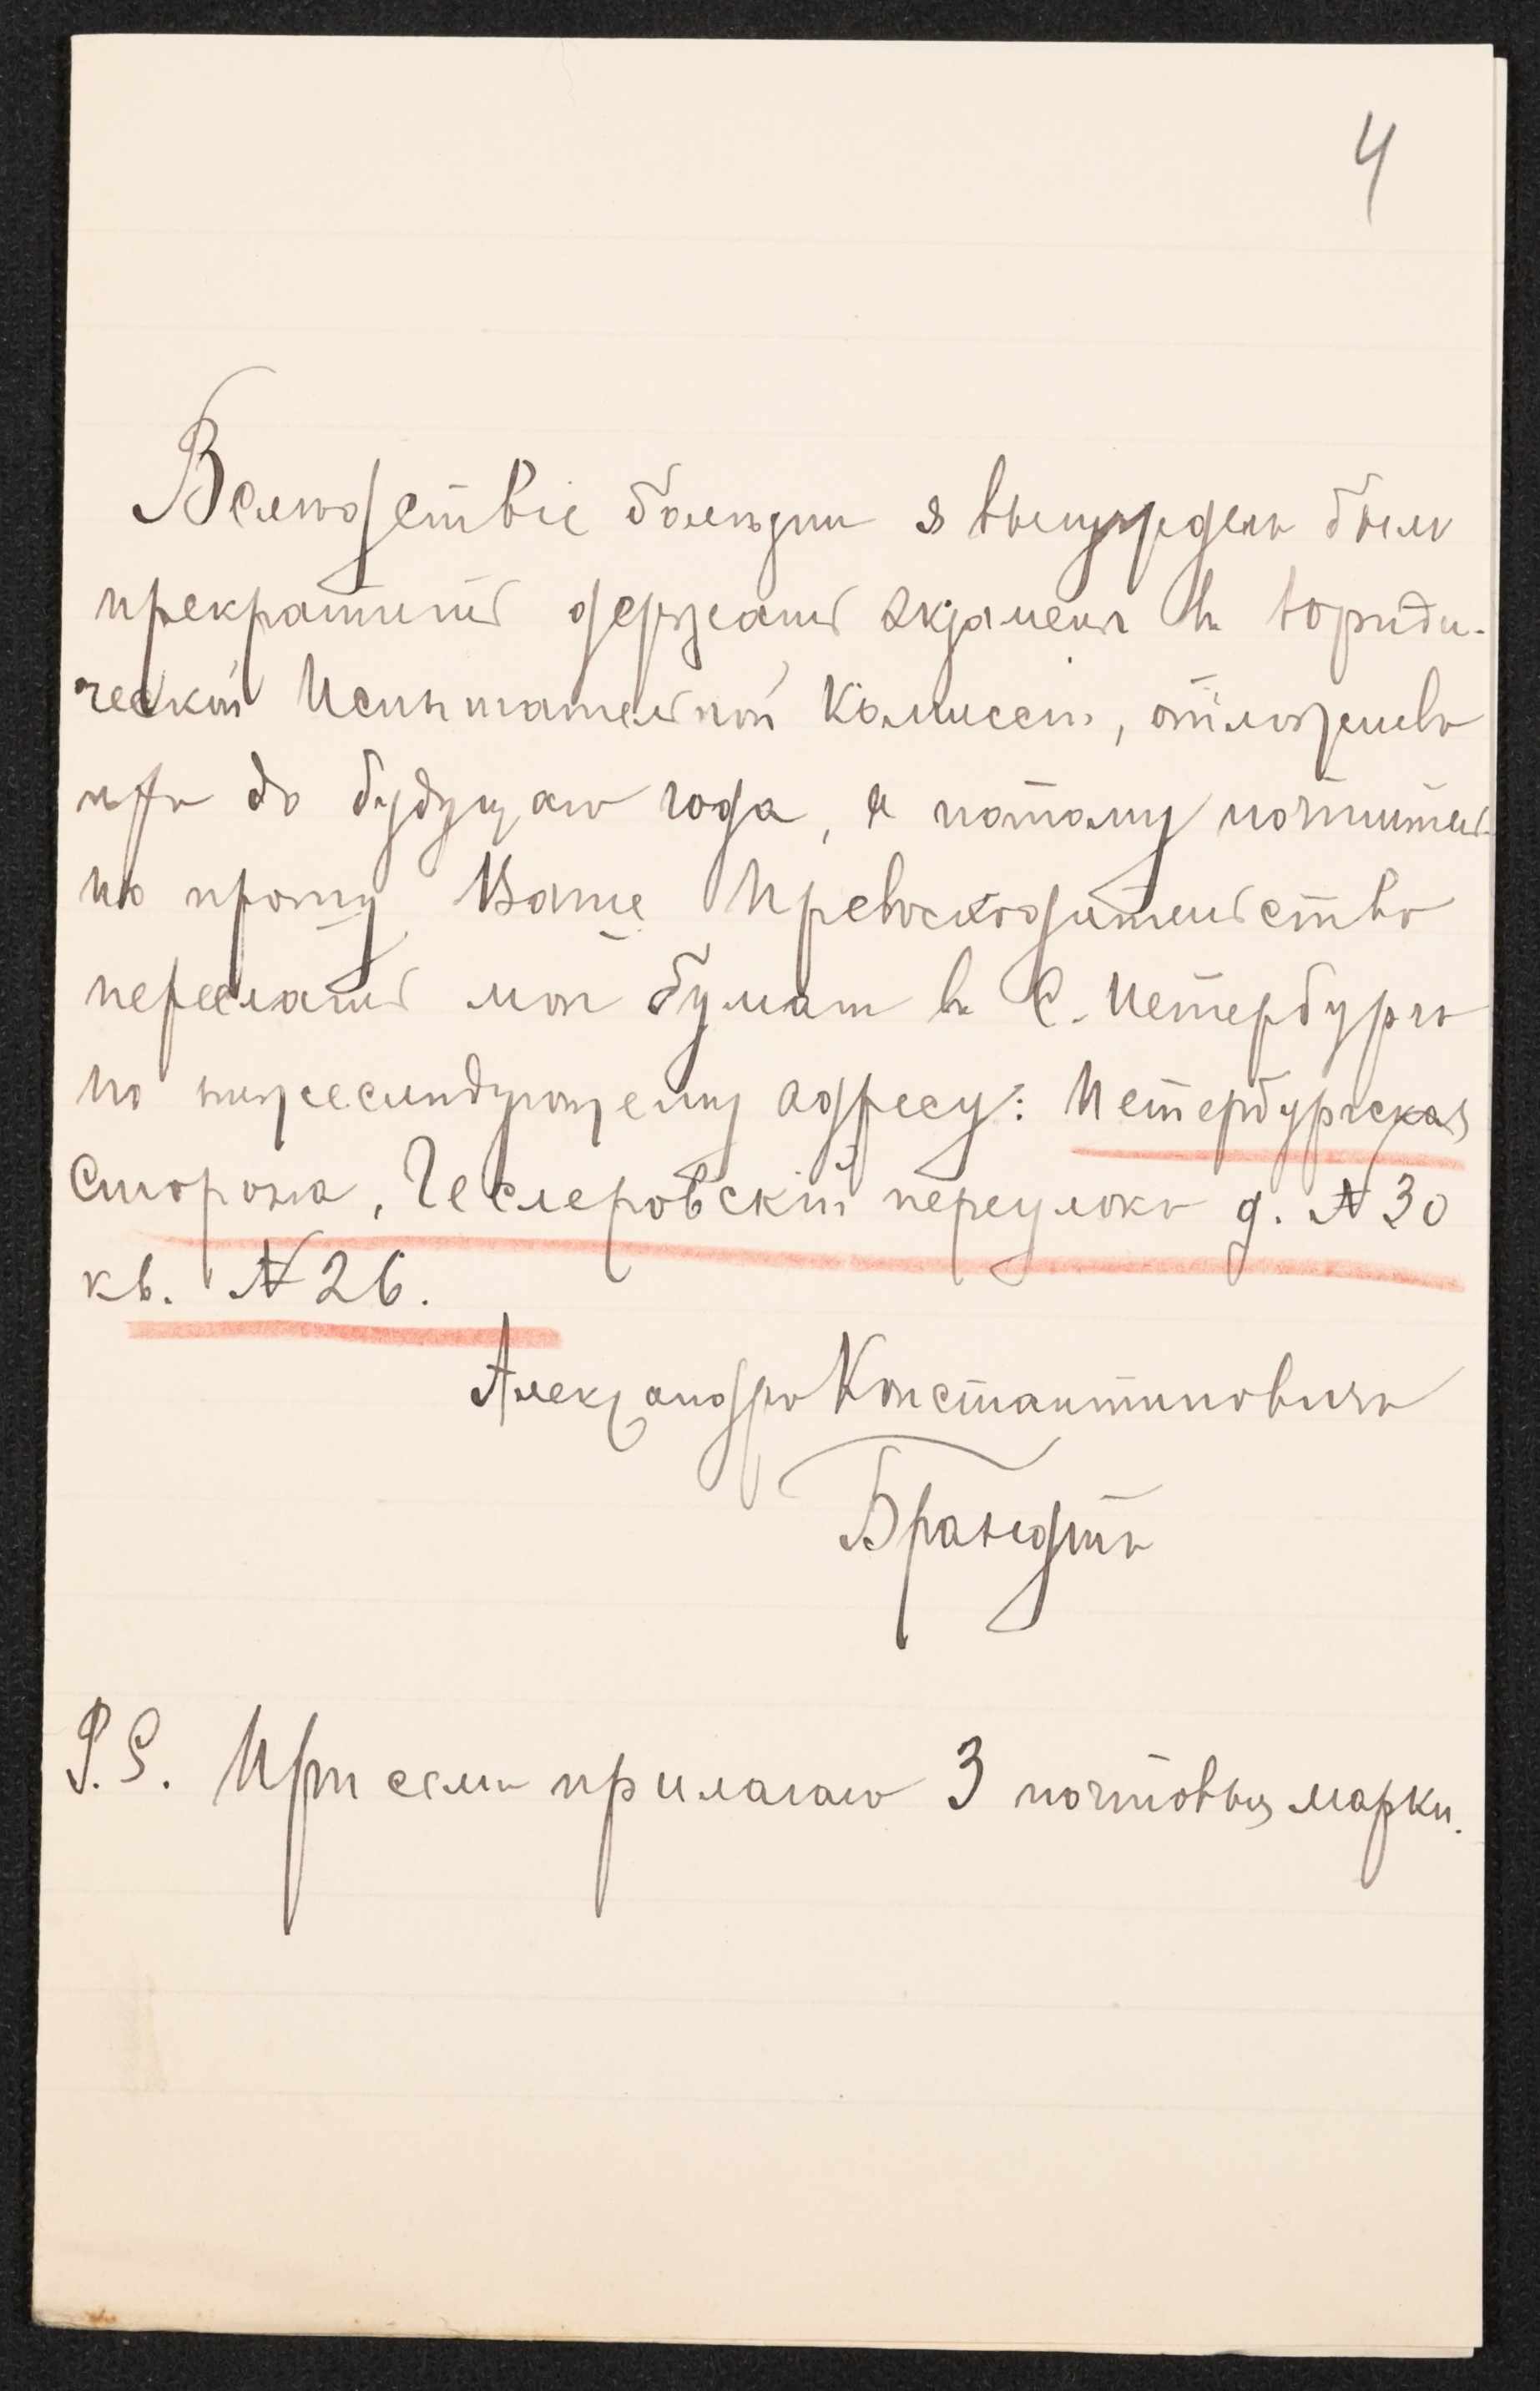 4
Вслѣдствіе болѣзни я вынужденъ былъ
прекратить держать экзамены въ Юриди-
ческой Испытательной Комиссіи, отложивъ
ихъ до будущаго года, а потому почтитель-
но прошу Ваше Превосходительство
переслать мои бумаги въ С. Петербургъ
по нижеслѣдующему адресу: Петербургская
Сторона, Геслеровскій переулокъ д. № 30
кв. № 26.
Александръ Константиновичъ
Брандтъ
P.S. При семъ прилагаю 3 почтовыя марки.